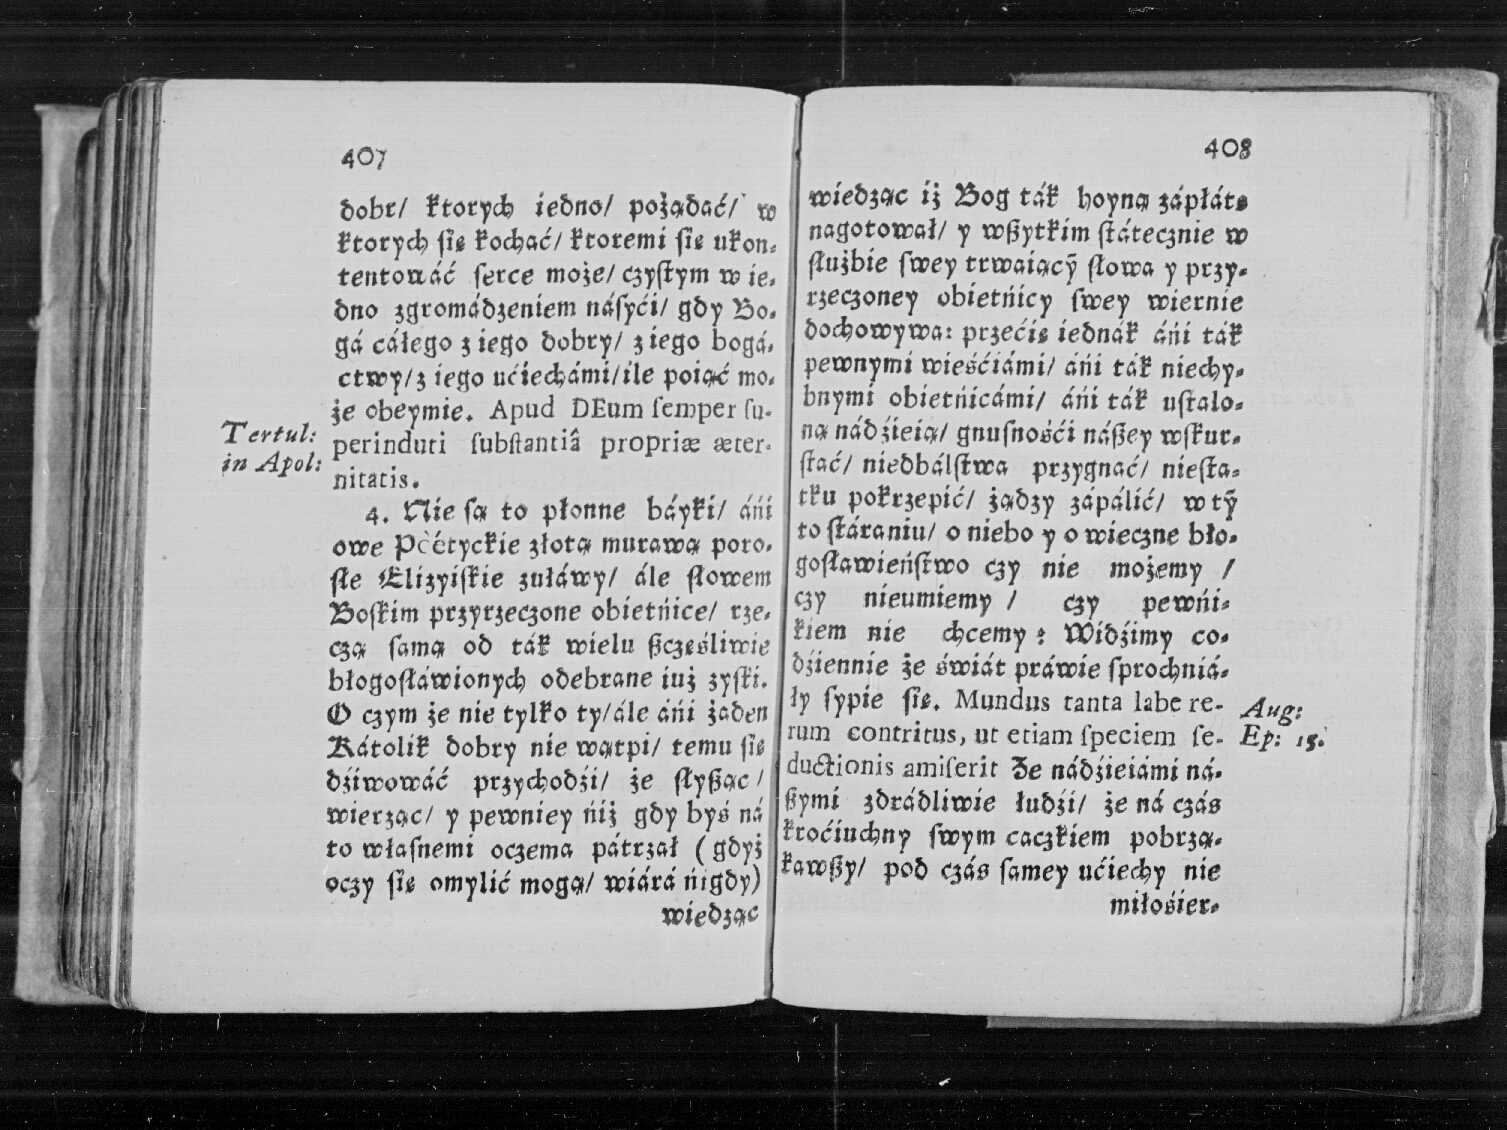 407
dobr/ ktorych iedno/ pożądać/ w
ktorych się kochać/ ktoremi się ukon-
tentowáć serce może/ czystym w ie-
dno zgromádzeniem násyći/ gdy Bo-
gá cáłego z iego dobry/ z iego bogá-
ctwy/ z iego ućiechámi/ ile poiąć mo-
że obeymie. Apud DEum semper su-
perinduti substantiâ propriæ æter-
nitatis.
Tertul:
in Apol:
4. Nie są to płonne báyki/ áńi
owe Pöétyckie złotą murawą poro-
słe Elizyiskie zuławy/ ále słowem
Boskim przyrzeczone obietńice/ rze-
czą samą od ták wielu ßczęśliwie
błogosłáwionych odebrane iuż zyski.
O czym że nie tylko ty/ ále áńi żaden
Kátolik dobry nie wątpi/ temu się
dźiwowáć przychodźi/ że słyßąc/
wierząc/ y pewniey ńiż gdy byś ná
to własnemi oczema pátrzał (gdyż
oczy się omylić mogą/ wiárá ńigdy)
wiedząc
408
wiedząc iż Bog ták hoyną zápłátę
nagotował/ y wßytkim státecznie w
służbie swey trwaiącỹ słowa y przy-
rzeczoney obietńicy swey wiernie
dochowywa: przećię iednák áńi ták
pewnymi wieśćiámi/ áńi ták niechy-
bnymi obietńicámi/ áńi ták ustalo-
ną nádźieią/ gnusnośći náßey wskur-
stać/ niedbálstwa przygnać/ niesta-
tku pokrzepić/ żądzy zápálić/ w tỹ
to stáraniu/ o niebo y o wieczne bło-
gosławieństwo czy nie możemy /
czy nieumiemy / czy pewńi-
kiem nie chcemy? Widźimy co-
dźiennie że świát práwie sprochniá-
ły sypie się. Mundus tanta labe re-
rum contritus, ut etiam speciem se-
ductionis amiserit Że nádźieiámi ná-
ßymi zdrádliwie łudźi/ że ná czás
kroćiuchny swym caczkiem pobrzą-
kawßy/ pod czás samey ućiechy nie
miłośier-
Aug:
Ep: 15.